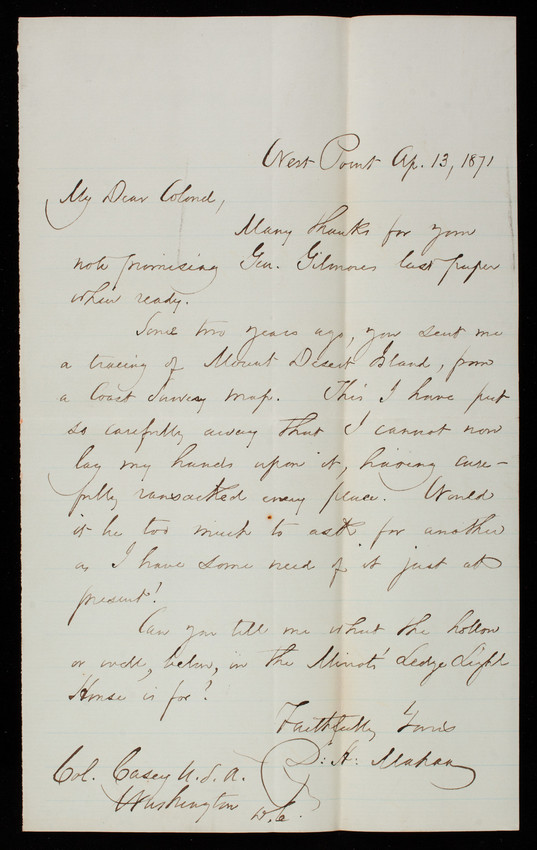 West Point Ap. 13, 1871
My Dear Colonel,
Many thanks for your
note promising Gen. Gilmores last paper
when ready.
Some two years ago, you sent me
a tracing of Mount Desert Island, from
a Coast Survey map. This I have put
so carefully away that I cannot now
lay my hands upon it, having care-
fully ransacked every place. Would
it be too much to ask for another
as I have some need of it just at
present!
Can you tell me what the hollow
or well, below, in the Minots' Ledge Light
House is for?
Faithfully Yours
D. H. Mahan
Col. Casey U.S.A.
Washington D.C.